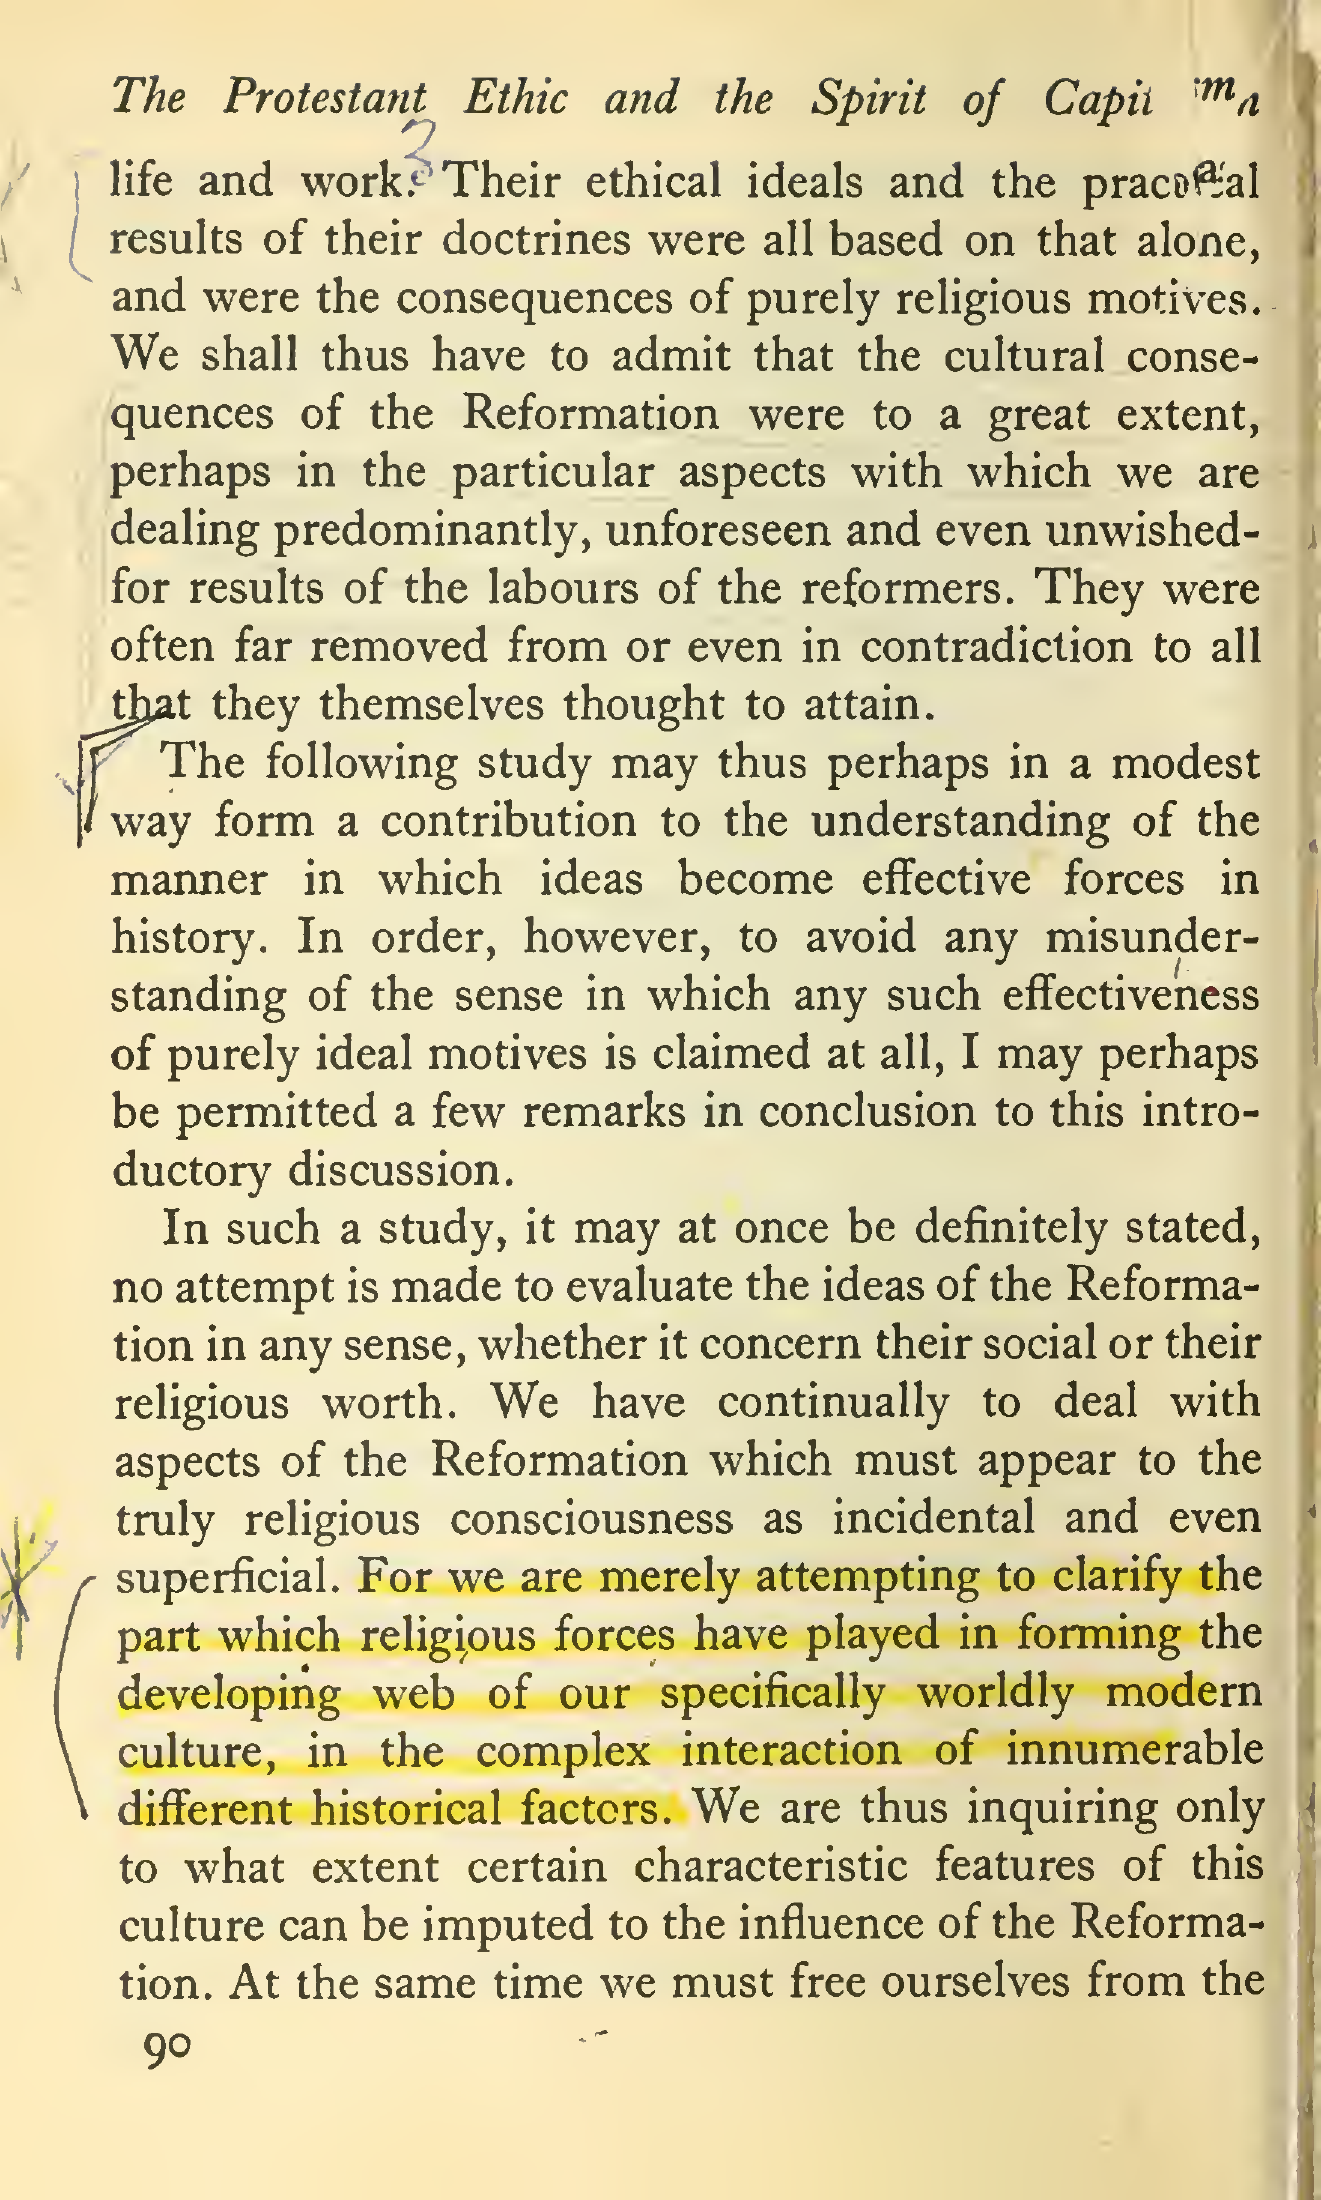 The Protestant Ethic and the Spirit of
life and work. Their ethical ideals and the
results of their doctrines were all based on that alone,
and were the consequences of purely religious motives.
We shall thus have to admit that the cultural conse-
quences of the Reformation were to a great extent,
perhaps in the particular aspects with which we are
dealing predominantly, unforeseen and even unwished-
for results of the labours of the reformers. They were
often far removed from or even in contradiction to all
that they themselves thought to attain.
The following study may thus perhaps in a modest
way form a contribution to the understanding of the
manner in which ideas become effective forces in
history. In order, however, to avoid any misunder-
standing of the sense in which any such effectiveness
of purely ideal motives is claimed at all, I may perhaps
be permitted a few remarks in conclusion to this intro-
ductory discussion.
In such a study, it may at once be definitely stated,
no attempt is made to evaluate the ideas of the Reforma-
tion in any sense, whether it concern their social or their
religious worth. We have continually to deal with
aspects of the Reformation which must appear to the
truly religious consciousness as incidental and even
superficial. For we are merely attempting to clarify the
part which religious forces have played in forming the
developing web of our specifically worldly modern
culture, in the complex interaction of innumerable
different historical factors. We are thus inquiring only
to what extent certain characteristic features of this
culture can be imputed to the influence of the Reforma-
tion. At the same time we must free ourselves from the
90